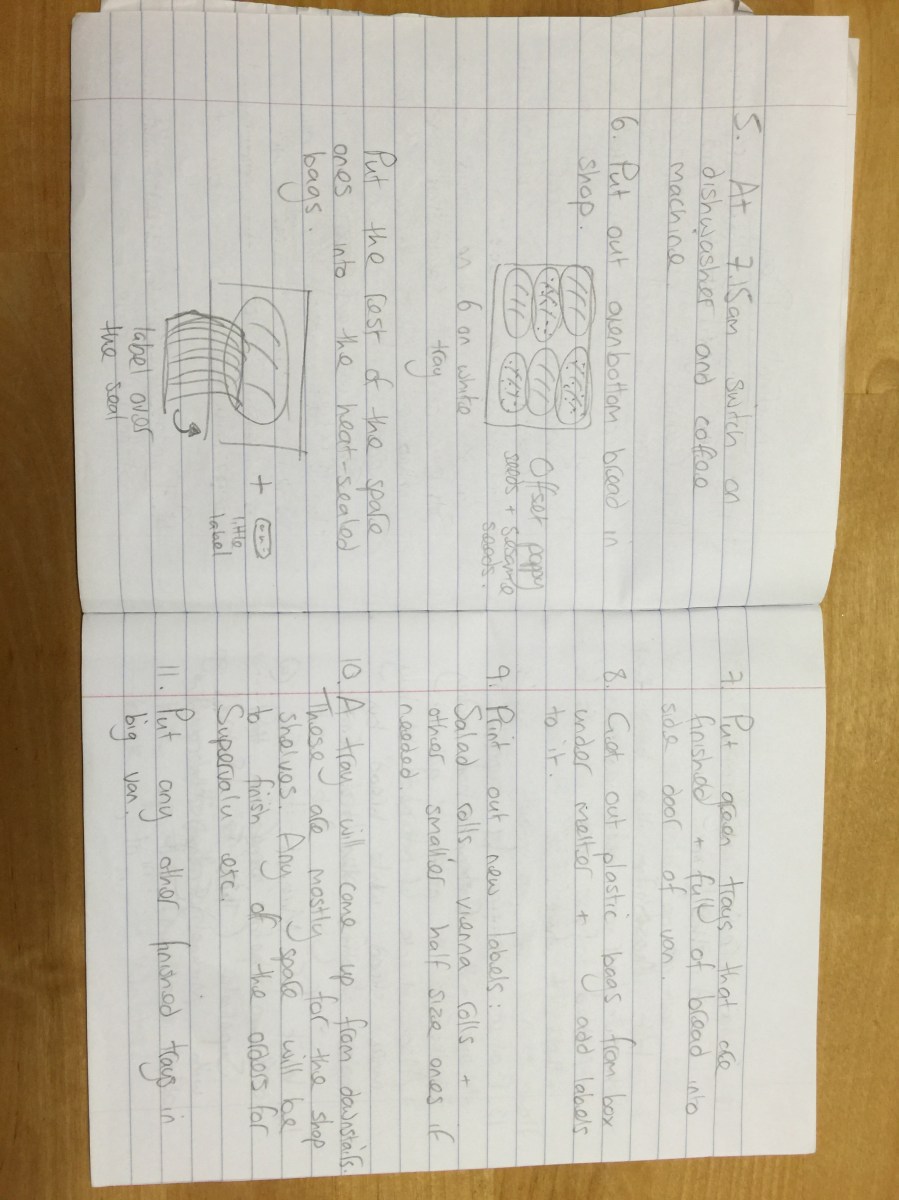 5. At 7.15am switch on
dishwasher and coffee
machine
6. Put out ovenbottom bread in
shop.
Offset poppy
seeds + sesame
seeds.
6 on white
tray
Put the rest of the spare
ones into the heat-sealed
bags.
+
little
label
label over
the seal
7. Put green trays that are
finished + full of bread into
side door of van.
8. Get out plastic bags from box
under melter + add labels
to it.
9. Print out new labels:
Salad rolls vienna rolls +
other smaller half size ones if
needed.
10. A tray will come up from downstairs.
Those are mostly for the shop
shelves. Any spare will be
to finish of the orders for
Supervalu etc.
11. Put any other finished trays in
big van.